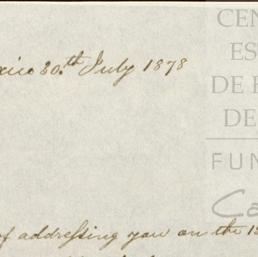 xico 30th July 1878
CEN
ES
DE E
DE
FUN
Ca
of addressing you on the 15